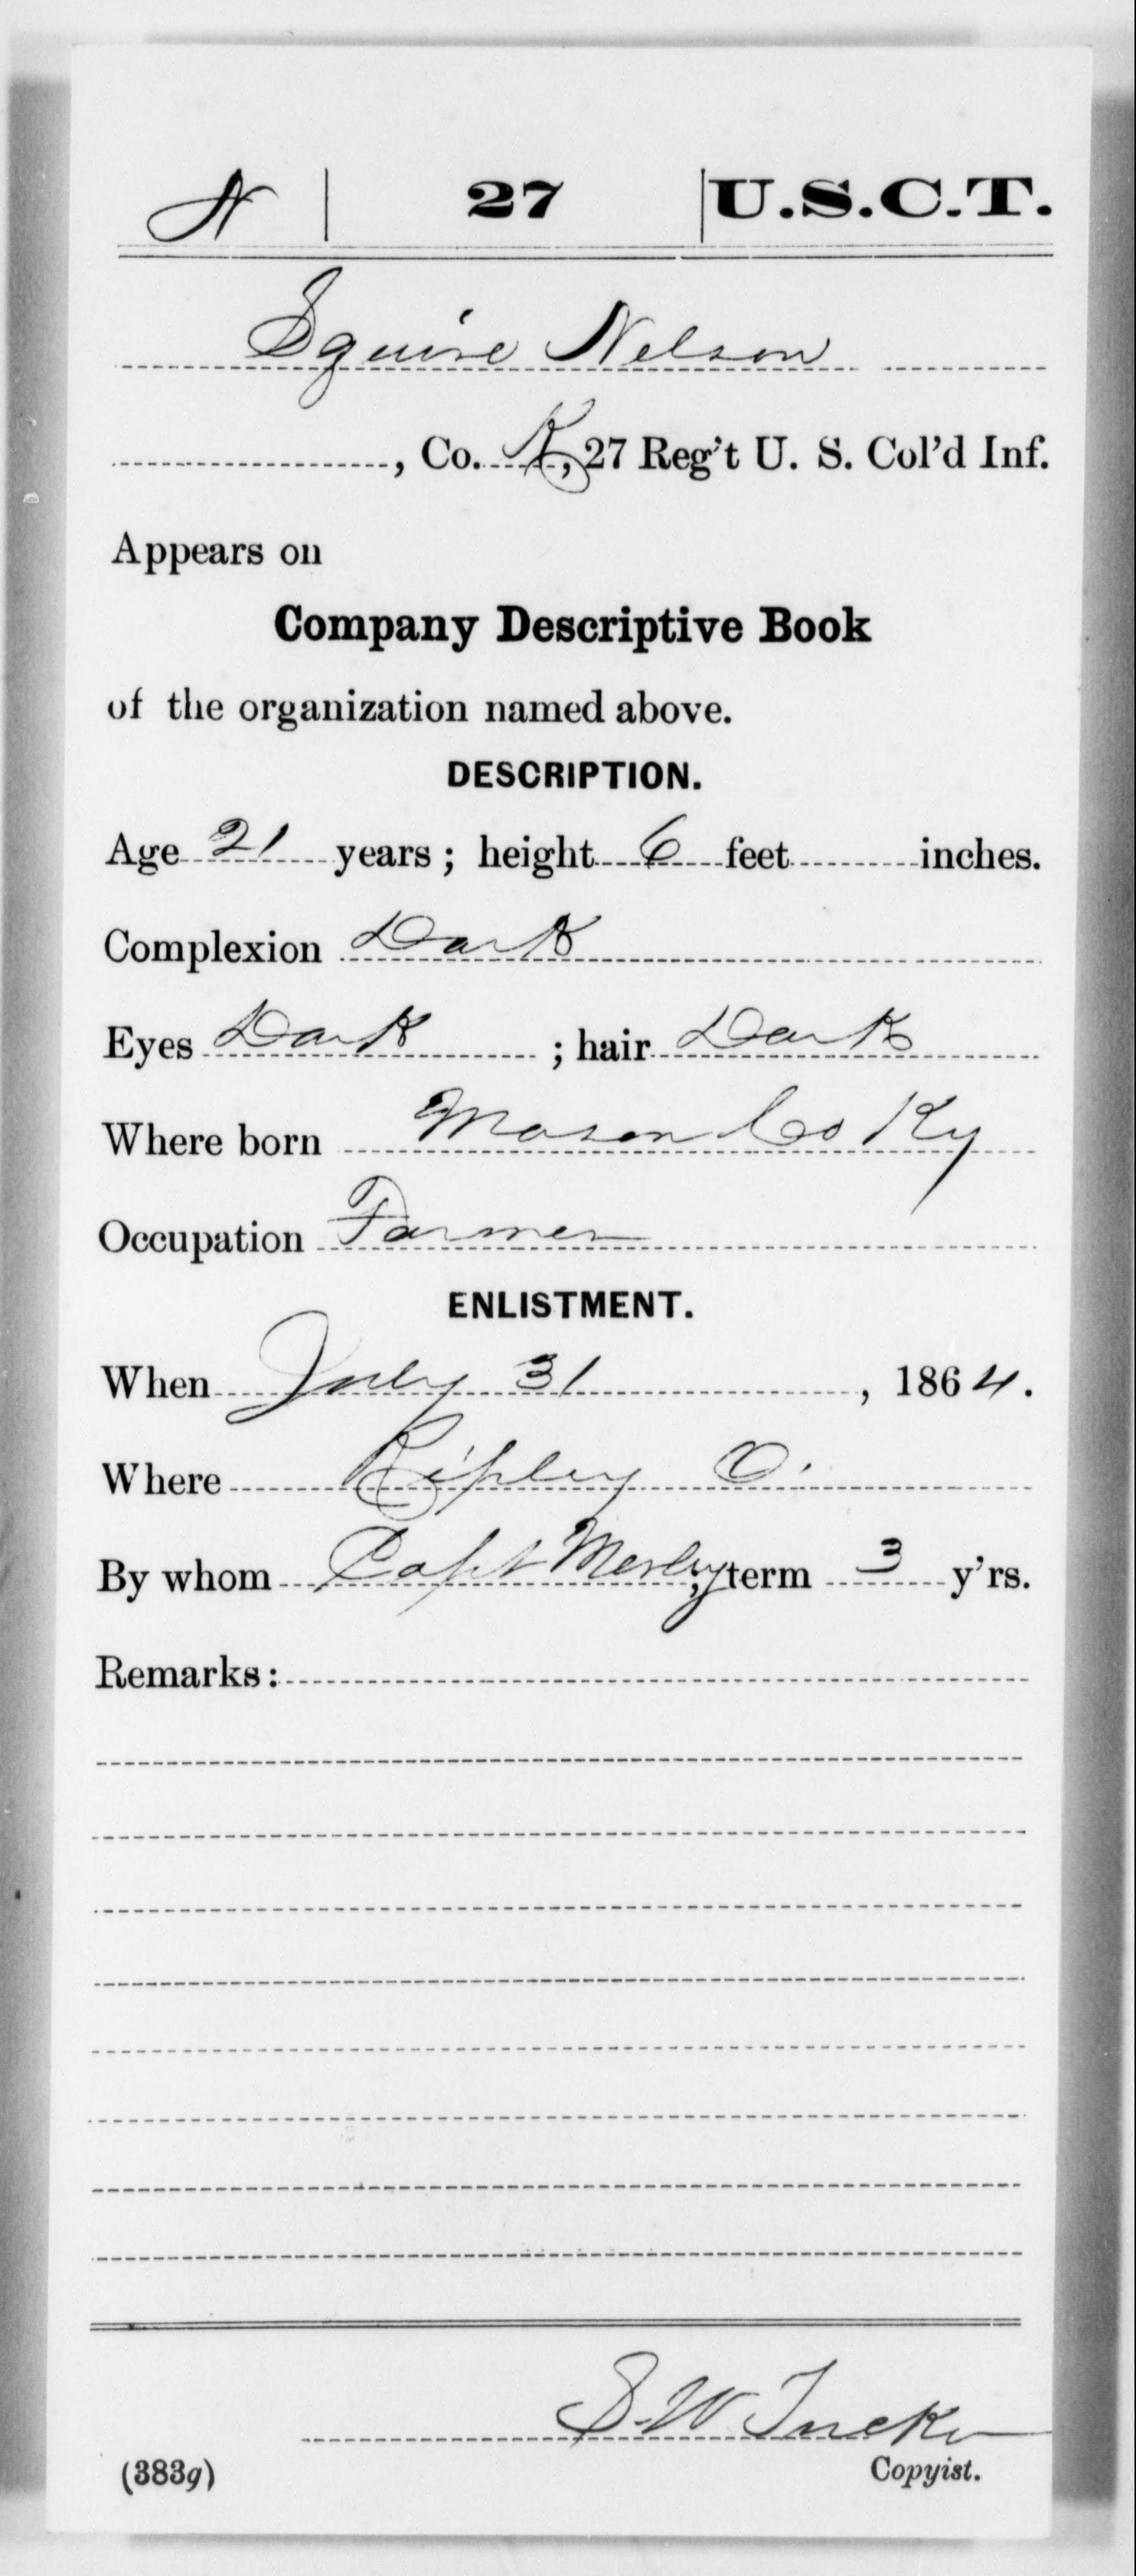 N 27 U.S.C.T.
Squire Nelson
, Co. K, 27 Reg't U. S. Col'd Inf.
Appears on
Company Descriptive Book
of the organization named above.
DESCRIPTION.
Age 21 years; height 6 feet inches.
Complexion Dark
Eyes Dark; hair Dark
Where born Mason Co Ky
Occupation Farmer
ENLISTMENT.
When July 31, 1864.
Where Ripley O.
By whom Capt, term 3 y'rs.
Remarks:
S. W. Tucker
(383g) Copyist.